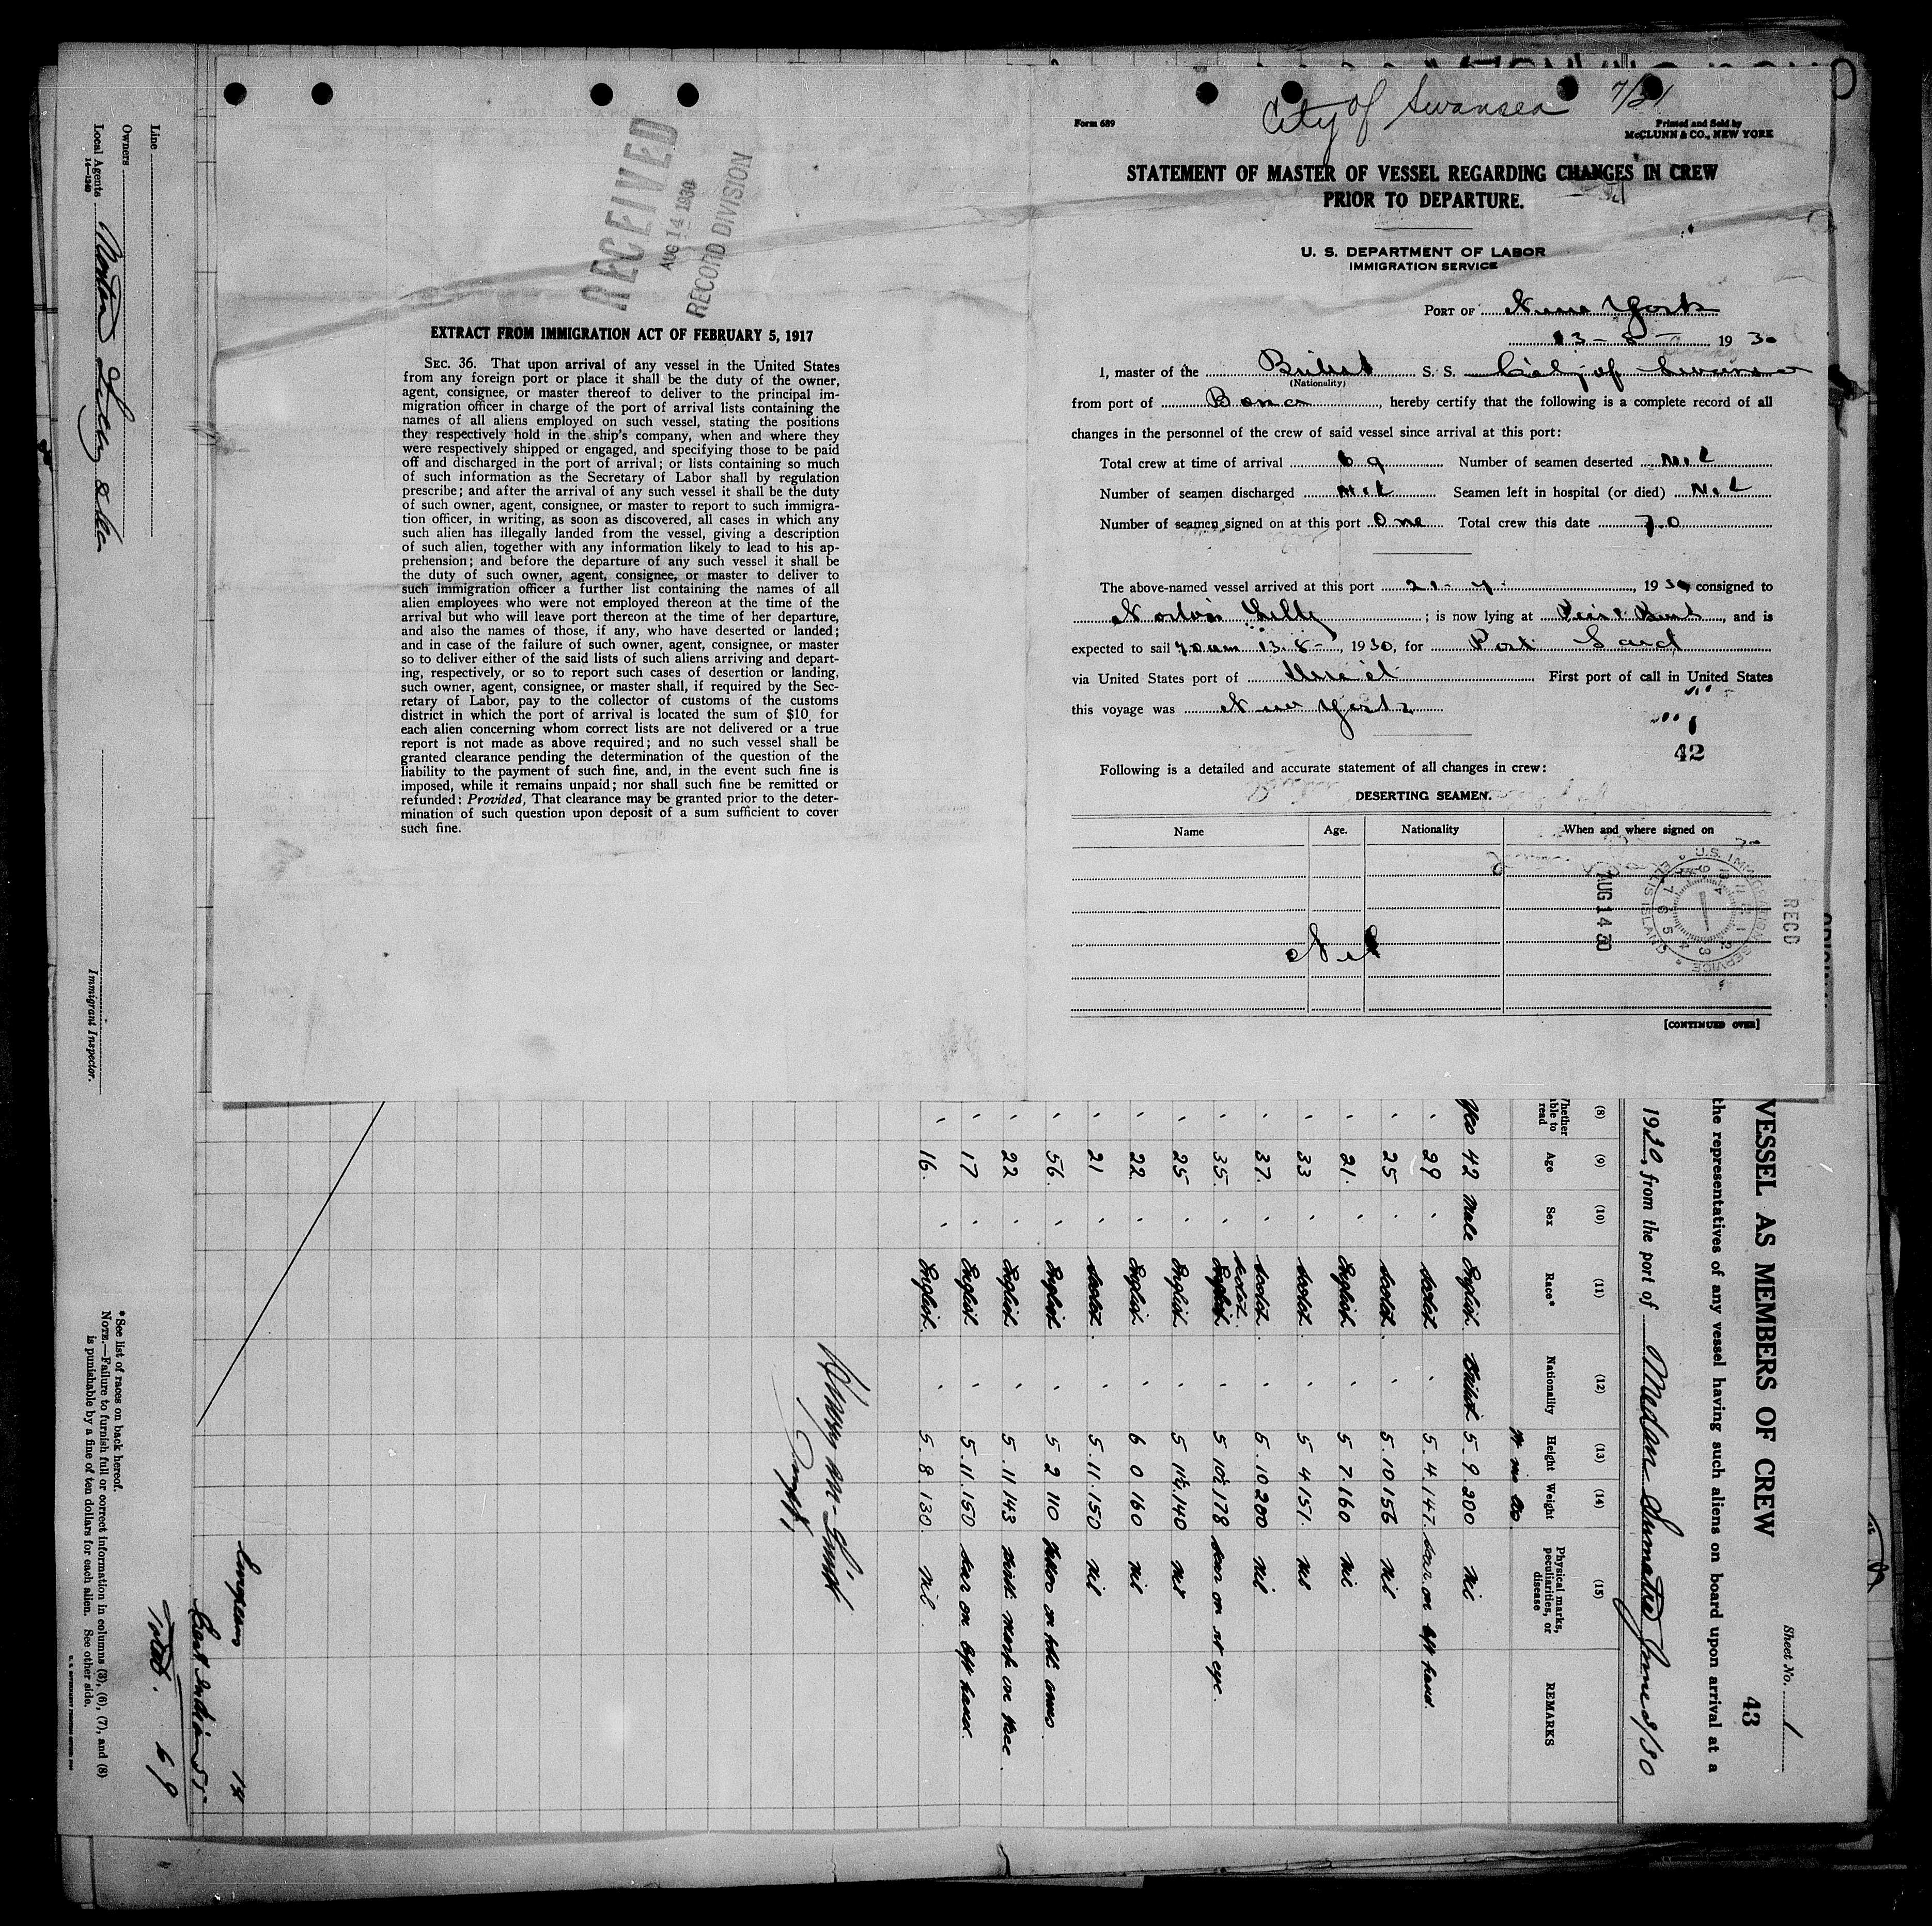 City of Swansea 7/21
Form 689
Printed and Sold by
McCLUNN & CO., NEW YORK
STATEMENT OF MASTER OF VESSEL REGARDING CHANGES IN CREW
PRIOR TO DEPARTURE.
U. S. DEPARTMENT OF LABOR
IMMIGRATION SERVICE
PORT OF New York
13-8- 1930
I, master of the British S. S. City of Swansea
(Nationality)
from port of , hereby certify that the following is a complete record of all
changes in the personnel of the crew of said vessel since arrival at this port:
Total crew at time of arrival 69 Number of seamen deserted Nil
Number of seamen discharged Nil Seamen left in hospital (or died) Nil
Number of seamen signed on at this port One Total crew this date 70
The above-named vessel arrived at this port 21-7- , 1930 consigned to
Norton Lilly ; is now lying at , and is
expected to sail 13-8- , 1930, for Port Said
via United States port of Direct First port of call in United States
this voyage was New York
42
Following is a detailed and accurate statement of all changes in crew:
DESERTING SEAMEN.
Name Age. Nationality When and where signed on
Nil
U.S. IMMIGRATION SERVICE ELLIS ISLAND
AUG 14 30
REC'D
[CONTINUED OVER]
RECEIVED
AUG 14 1930
RECORD DIVISION
EXTRACT FROM IMMIGRATION ACT OF FEBRUARY 5, 1917
SEC. 36. That upon arrival of any vessel in the United States
from any foreign port or place it shall be the duty of the owner,
agent, consignee, or master thereof to deliver to the principal im-
migration officer in charge of the port of arrival lists containing the
names of all aliens employed on such vessel, stating the positions
they respectively hold in the ship's company, when and where they
were respectively shipped or engaged, and specifying those to be paid
off and discharged in the port of arrival; or lists containing so much
of such information as the Secretary of Labor shall by regulation
prescribe; and after the arrival of any such vessel it shall be the duty
of such owner, agent, consignee, or master to report to such immigra-
tion officer, in writing, as soon as discovered, all cases in which any
such alien has illegally landed from the vessel, giving a description
of such alien, together with any information likely to lead to his ap-
prehension; and before the departure of any such vessel it shall be
the duty of such owner, agent, consignee, or master to deliver to
such immigration officer a further list containing the names of all
alien employees who were not employed thereon at the time of the
arrival but who will leave port thereon at the time of her departure,
and also the names of those, if any, who have deserted or landed;
and in case of the failure of such owner, agent, consignee, or master
so to deliver either of the said lists of such aliens arriving and depart-
ing, respectively, or so to report such cases of desertion or landing,
such owner, agent, consignee, or master shall, if required by the Sec-
retary of Labor, pay to the collector of customs of the customs
district in which the port of arrival is located the sum of $10 for
each alien concerning whom correct lists are not delivered or a true
report is not made as above required; and no such vessel shall be
granted clearance pending the determination of the question of the
liability to the payment of such fine, and, in the event such fine is
imposed, while it remains unpaid; nor shall such fine be remitted or
refunded: Provided, That clearance may be granted prior to the deter-
mination of such question upon deposit of a sum sufficient to cover
such fine.
Sheet No. 1
43
VESSEL AS MEMBERS OF CREW
the representatives of any vessel having such aliens on board upon arrival at a
1930, from the port of Medan Sumatra June 8/30
(8) (9) (10) (11) (12) (13) (14) (15)
Whether able to read Age Sex Race* Nationality Height Weight Physical marks, peculiarities, or disease REMARKS
yes 42 Male English British 5 9 200 nil
29 Scotch 5 4 147 scar on left hand.
25 Scotch 5 10 156 nil
21 English 5 7 160 nil
33 Scotch 5 4 151 nil
37 Scotch 5 10 200 nil
35 English Scotch 5 10½ 178 scar on rt eye.
25 English 5 11½ 140 nil
22 English 6 0 160 nil
21 Scotch 5 11 150 nil
56 English 5 2 110 Tattoo on both arms
22 English 5 11 143 birth mark on knee
17 English 5 11 150 scar on left hand.
16 English 5 8 130 nil
14
East Indian 55
Total. 69
Line
Owners
Local Agents Norton Lilly & Co
14—1240
Immigrant Inspector.
*See list of races on back hereof.
NOTE.—Failure to furnish full or correct information in columns (3), (6), (7), and (8)
is punishable by a fine of ten dollars for each alien. See other side.